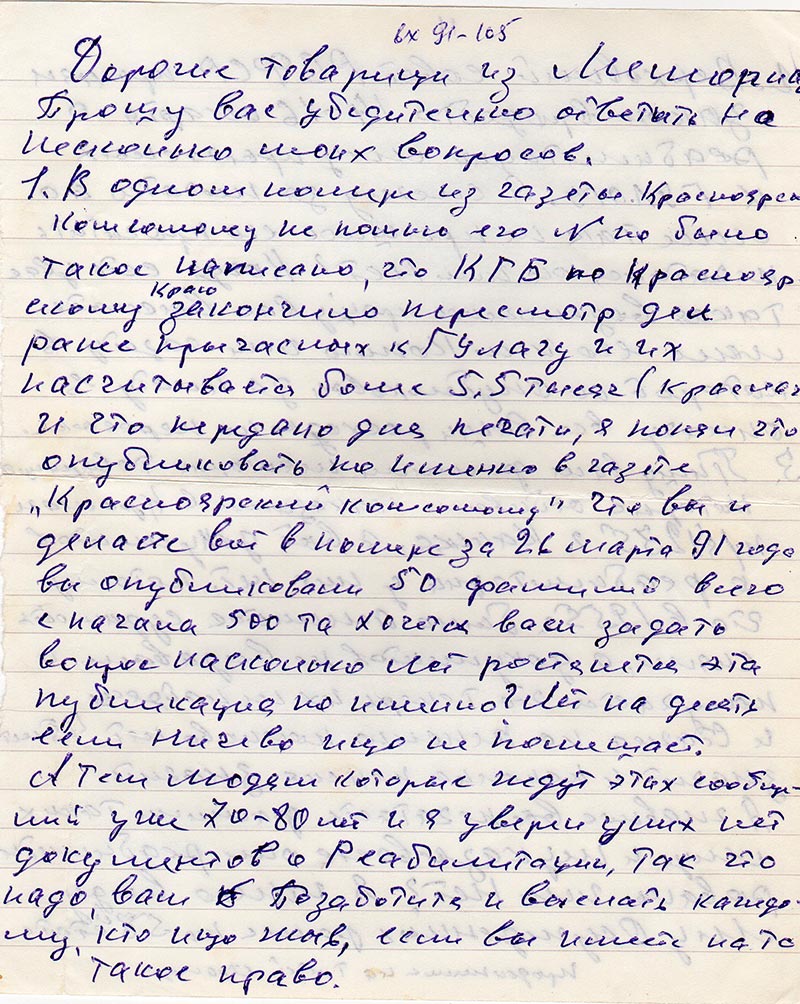 вх 91-105
Дорогие товарищи из Мемориа
Прошу вас убедительно ответить на
несколько моих вопросов.
1. В одном номере из газеты Краснояр
комсомолу не помню его N но было
такое написано, что КГБ по Краснояр-
скому Краю закончило пересмотр дел
ранее причасных к ГУлагу и их
насчитывается более 5,5 тысяч (красноя
и что передано для печати, я понял что
опубликовать по именно в газете
„Красноярский комсомолу" что вы и
делаете вот в номере за 26 марта 91 года
вы опубликовали 50 фамилий всего
с начала 500 та хочется вам задать
вопрос насколько лет ростянется эта
публикация по именно? Лет на десять
если ничево ищо не помешает.
А тем людям которые ждут этих сообще-
ний уже 70-80 лет и я уверен у них нет
документов о Реабилитации, так что
надо вам Позаботится и выслать каждо-
му, кто ищо жыв, если вы имеете на то
такое право.